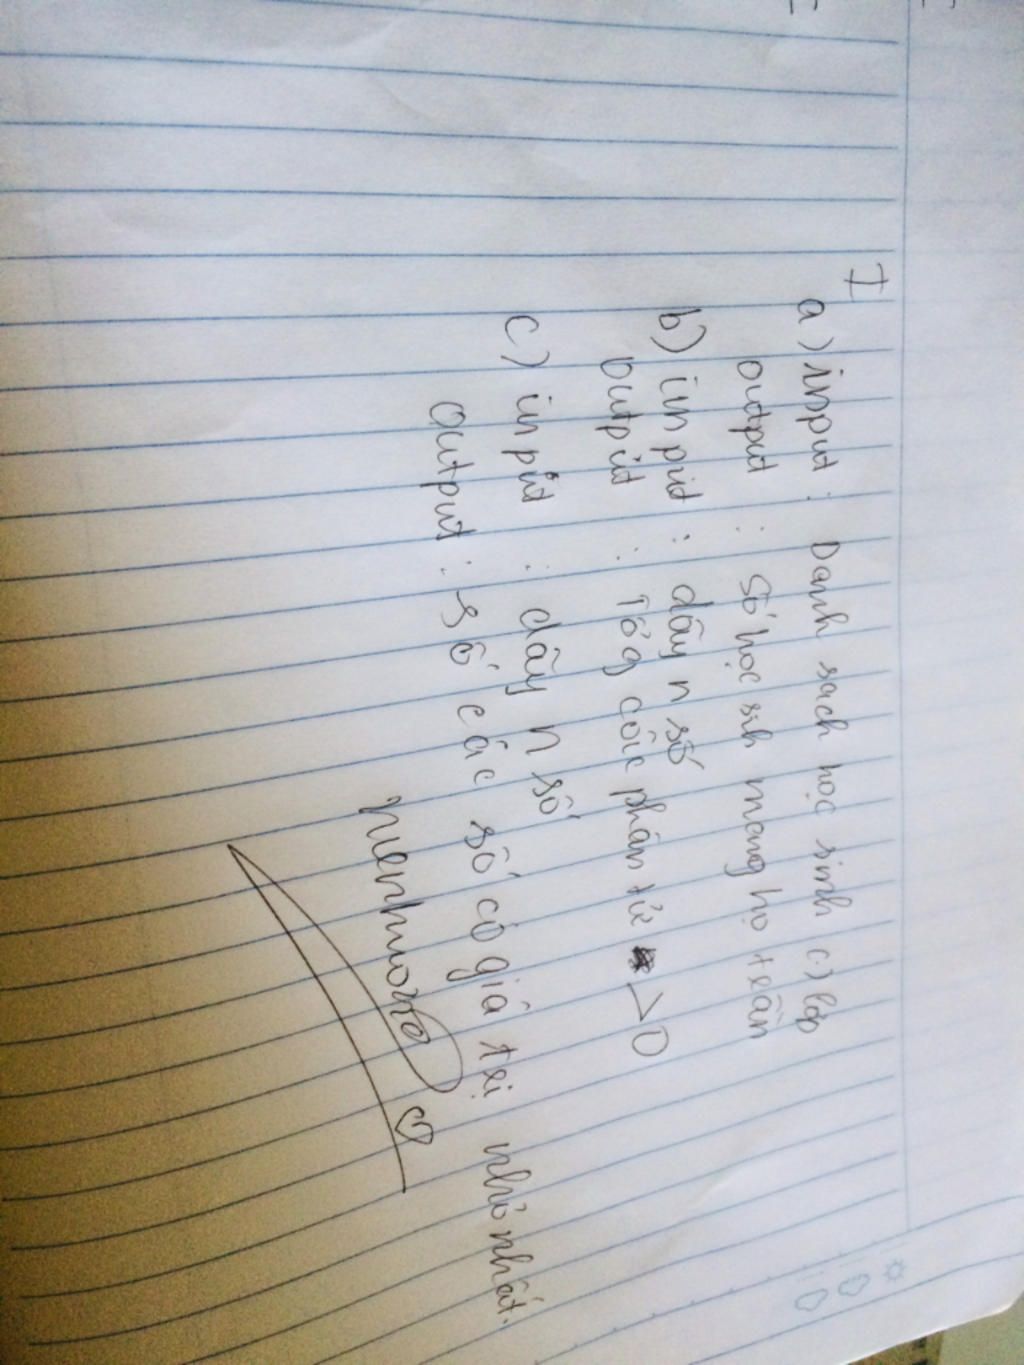 I
a) input : Danh sach học sinh c) lớp
output : Số học sih mang họ teần
b) in put : dãy n số
output : Tổg các phần tử > 0
c) in put : dãy n số
output : số các số có giá trị nhỏ nhất.